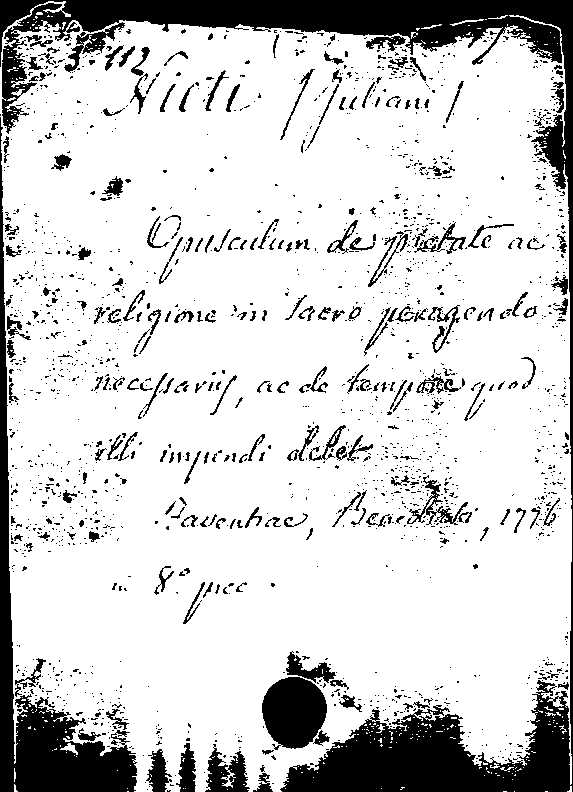 3. 112
Nicti / Juliani /
Opusculum de pietate ac
religione in sacro peragendo
necessariis, ac de tempore quod
illi impendi debet.
Faventiae, Benedicti, 1776
in 8.º picc.